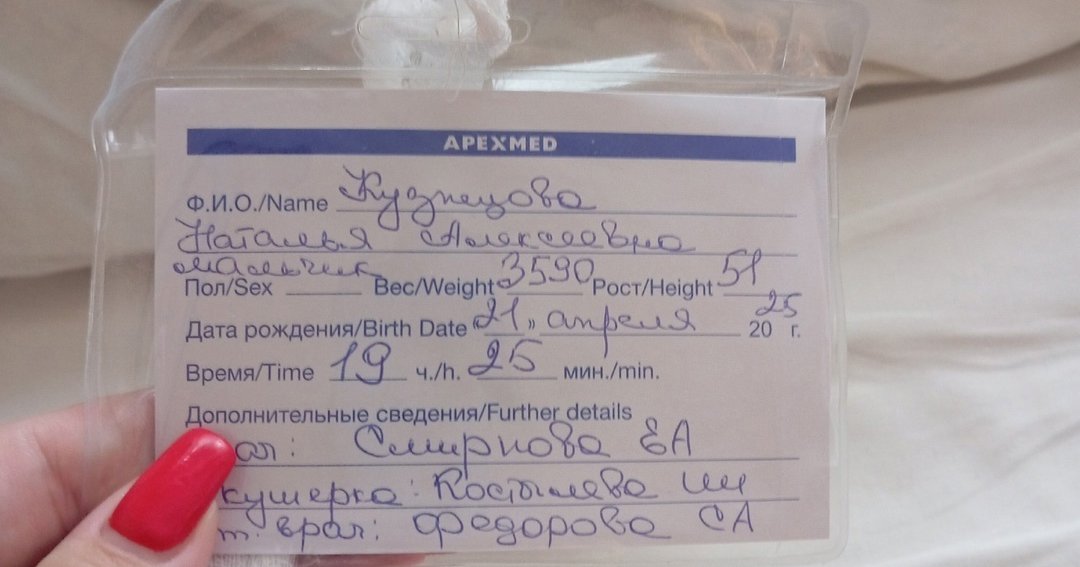 APEXMED
Ф.И.О./Name Кузнецова
Наталья Алексеевна
мальчик
Пол/Sex Вес/Weight 3590 Рост/Height 51
Дата рождения/Birth Date «21» апреля 2025 г.
Время/Time 19 ч./h. 25 мин./min.
Дополнительные сведения/Further details
Смирнова ЕА
кушерка: Костылева
врач: Федорова СА